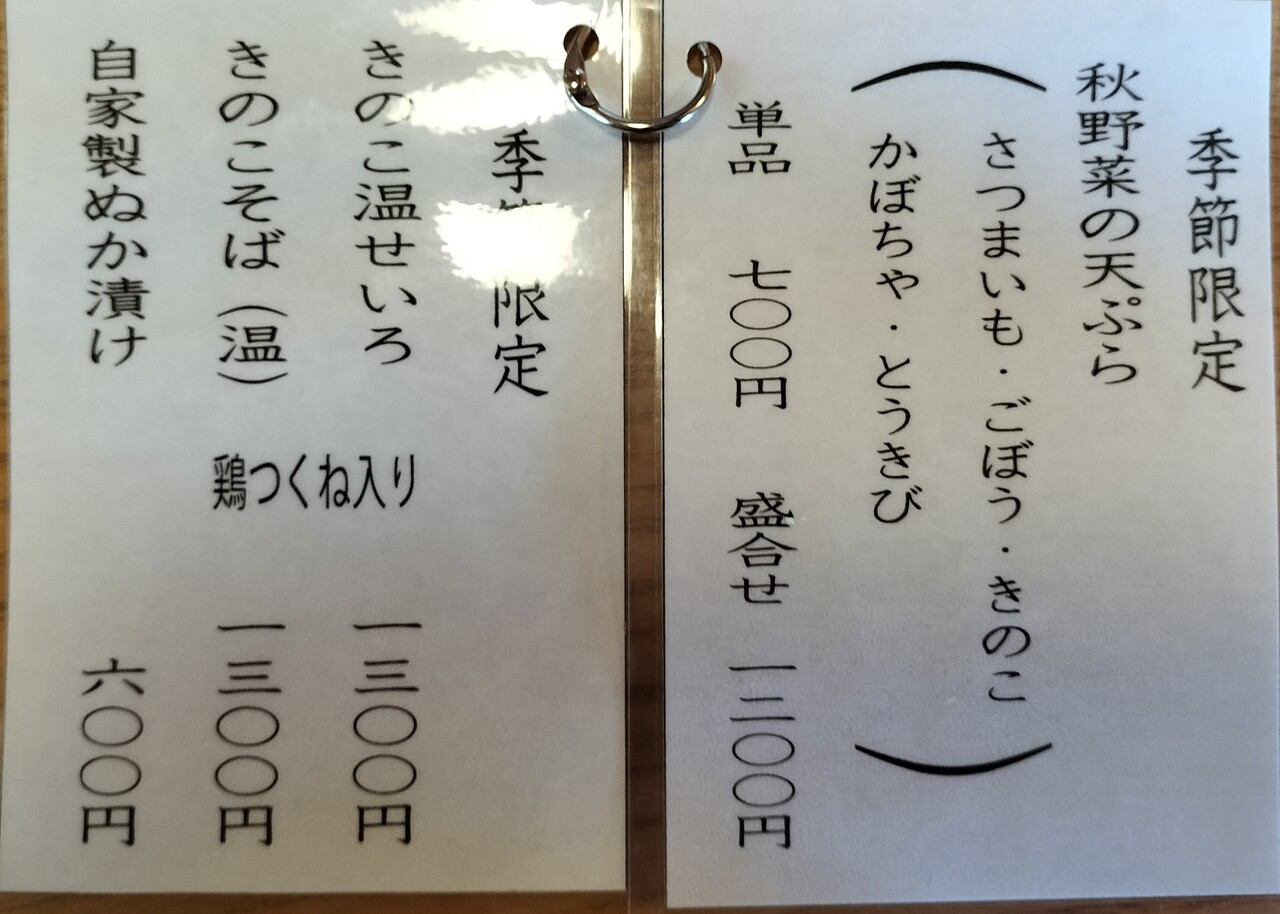 季節限定
秋野菜の天ぷら
（さつまいも・ごぼう・きのこ
かぼちゃ・とうきび）
単品 七〇〇円 盛合せ 一二〇〇円
季節限定
きのこ温せいろ 一三〇〇円
きのこそば（温） 一三〇〇円
鶏つくね入り
自家製ぬか漬け 六〇〇円